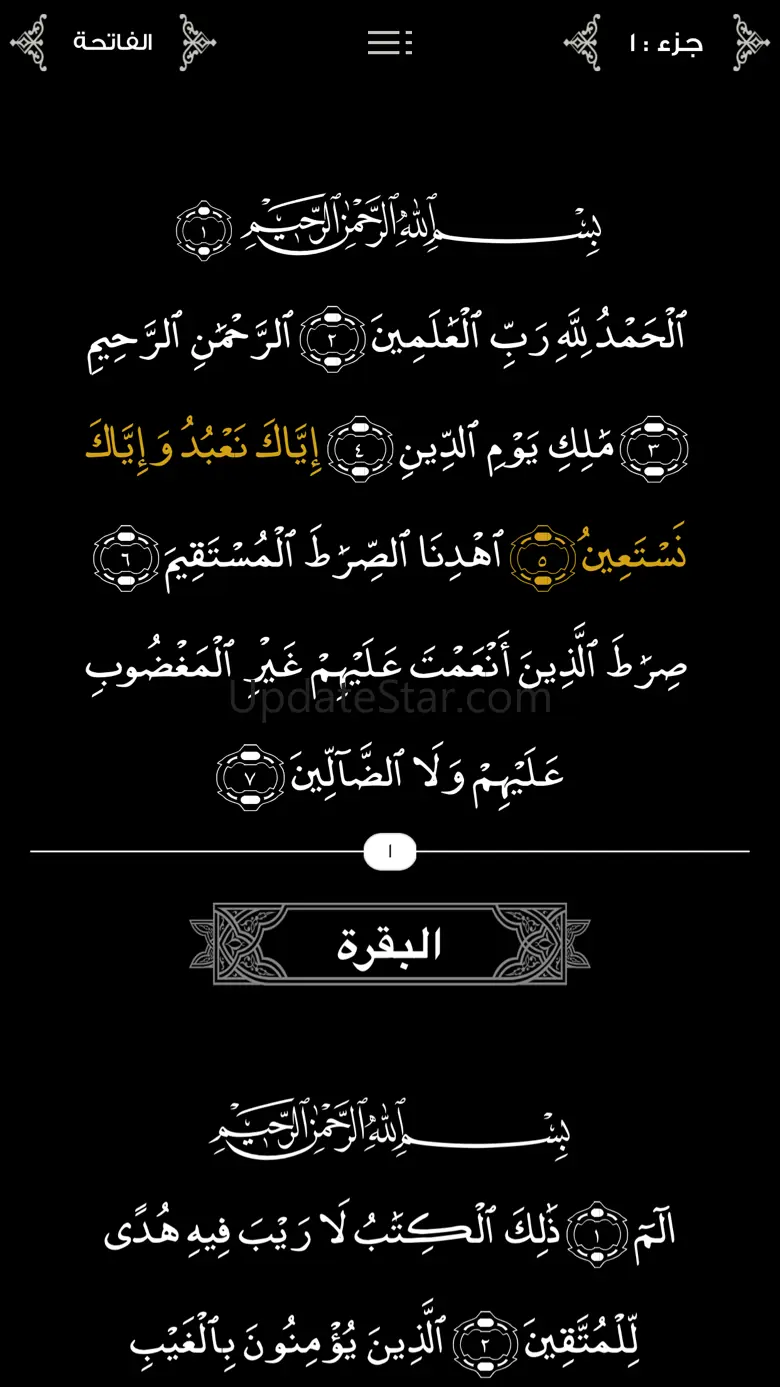 جزء : ١
الفاتحة
بِسْمِ ٱللَّهِ ٱلرَّحْمَٰنِ ٱلرَّحِيمِ ١
ٱلْحَمْدُ لِلَّهِ رَبِّ ٱلْعَٰلَمِينَ ٢ ٱلرَّحْمَٰنِ ٱلرَّحِيمِ
٣ مَٰلِكِ يَوْمِ ٱلدِّينِ ٤ إِيَّاكَ نَعْبُدُ وَإِيَّاكَ
نَسْتَعِينُ ٥ ٱهْدِنَا ٱلصِّرَٰطَ ٱلْمُسْتَقِيمَ ٦
صِرَٰطَ ٱلَّذِينَ أَنْعَمْتَ عَلَيْهِمْ غَيْرِ ٱلْمَغْضُوبِ
UpdateStar.com
عَلَيْهِمْ وَلَا ٱلضَّآلِّينَ ٧
١
البقرة
بِسْمِ ٱللَّهِ ٱلرَّحْمَٰنِ ٱلرَّحِيمِ
الٓمٓ ١ ذَٰلِكَ ٱلْكِتَٰبُ لَا رَيْبَ فِيهِ هُدًى
لِّلْمُتَّقِينَ ٢ ٱلَّذِينَ يُؤْمِنُونَ بِٱلْغَيْبِ